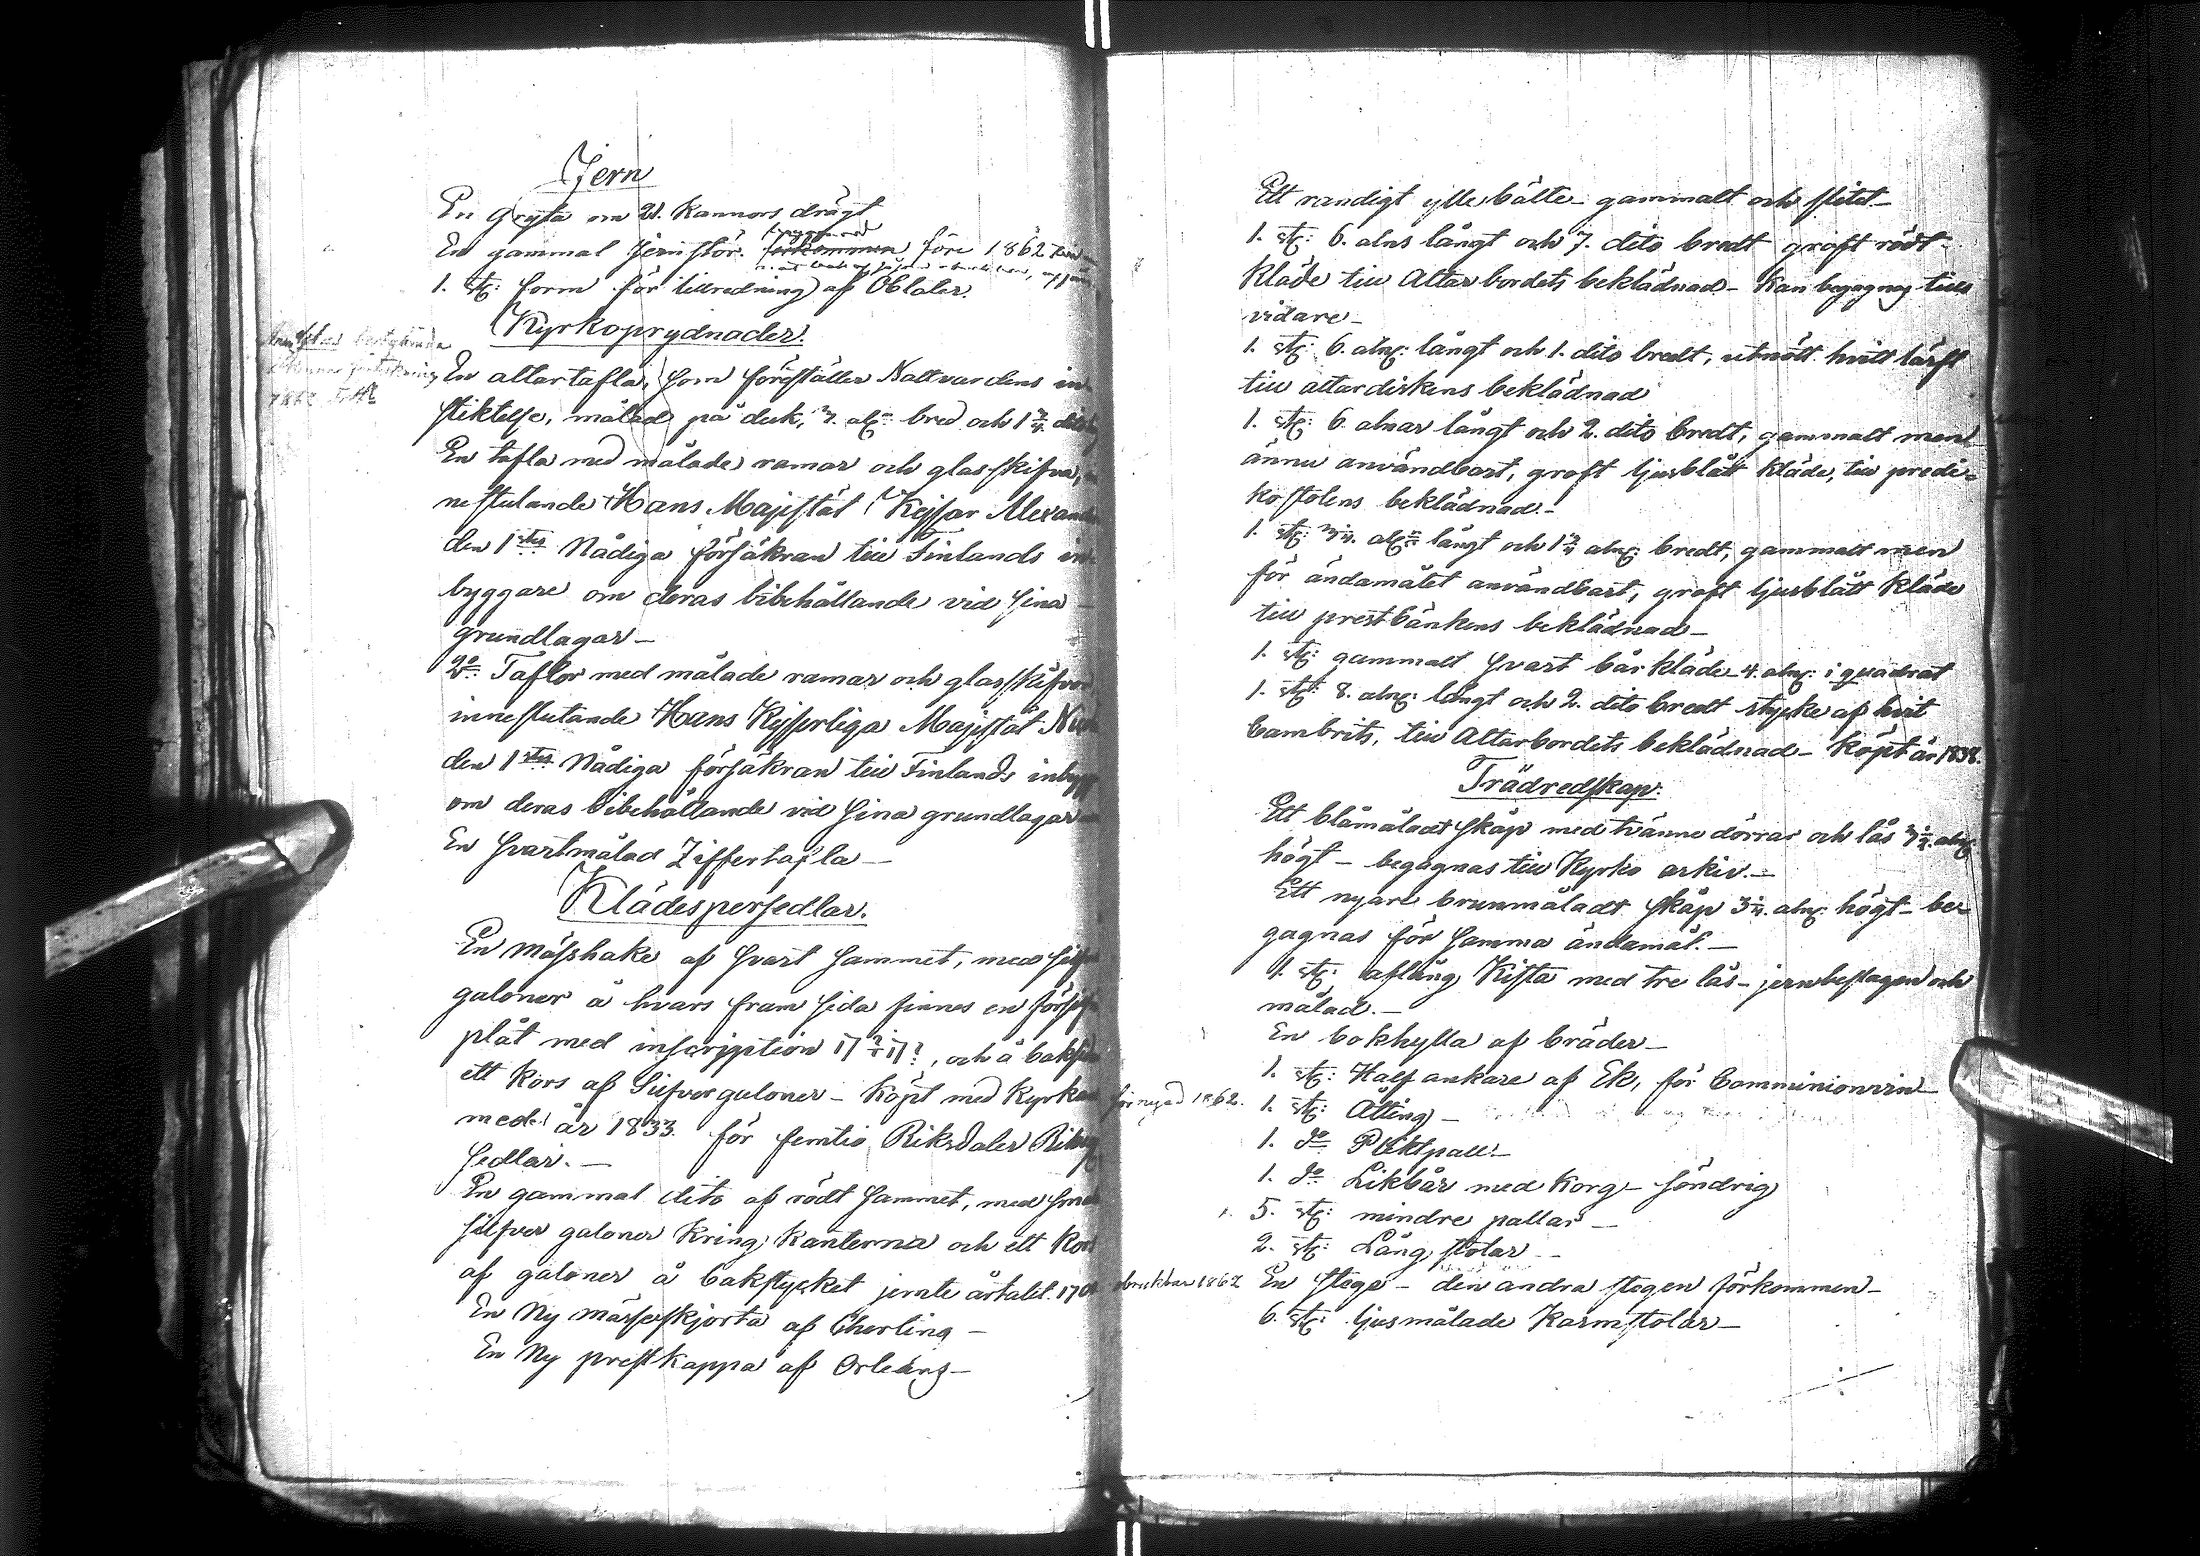 Jern
En Gryta om 21. Kannors drägt
En gammal Jernstör. förkommen före 1862
1. st: form för tillredning af Oblater.
Kyrkoprydnader.
En altartafla, som föreställer Nattvardens in
stiktelse, målad på duk, 3. aln: bred och 1 3/4.
En tafla med målade ramar och glasskifva,
neslutande Hans Majestät Kejsar Alexan
den 1stes Nådiga försäkran till Finlands in
byggare om deras bibehållande vid sina
grundlagar_
2ne Taflor med målade ramar och glasskifvor
inneslutande Hans Kejserliga Majestät
den 1stes Nådiga försäkran till Finlands inbygg
om deras bibehållande vid sina grundlagar
En svartmålad Ziffertafla_
Klädespersedlar.
En mässhake af svart sammet, med
galoner å hvars fram sida finnes en
plåt med inscription, och å baksi
ett kors af Silfvergaloner_ Köpt med Kyrkan
medel år 1833. för femtio Riksdaler
sedlar._
En gammal dito af rödt sammet, med
silfver galoner kring kanterna och ett Kor
af galoner å bakstycket jemte årtalet
En Ny mässeskjorta af Cherting_
En Ny prestkappa af Orleans_
Ett randigt ylle bälte_ gammalt och slitet_
1. st: 6. alns långt och 7. dito bredt groft rödt
Kläde till Altar bordets beklädnad_ Kan begagnas tills
vidare_
1. st: 6. aln: långt och 1. dito bredt, utnött hvitt lärft
till altardiskens beklädnad
1. st: 6. alnar långt och 2. dito bredt, gammalt men
ännu användbart, groft ljusblått kläde, till predi=
kostolens beklädnad._
1. st: aln: långt och aln: bredt, gammalt men
för ändamålet användbart, groft ljusblått kläde
till prestbänkens beklädnad_
1. st: gammalt svart bårkläde_ 4. aln: i quadrat
1. st: 8. aln: långt och 2. dito bredt stycke af hvit
Cambrits, till Altarbordets beklädnad_ Köpt år 1838.
Trädredskap.
Ett blåmåladt skåp med tvänne dörrar och lås aln:
högt_ begagnas till Kyrko arkiv._
Ett nyare brunmåladt skåp aln: högt_ be=
gagnas för samma ändamål._
1. st: aflång Kista med tre lås_ jernbeslagen och
målad._
En bokhylla af bräder_
1. st: Half ankare af Ek, för Communionvin_
förnyad 1862. 1. st: Åtting_
1. do Pliktpall_
1. do Likbår med Korg_ söndrig
5. st: mindre pallar_
2. st: Lång stolar_
obrukbar 1862 En stege_ den andra stegen förkommen_
6. st: ljusmålade Karmstolar_